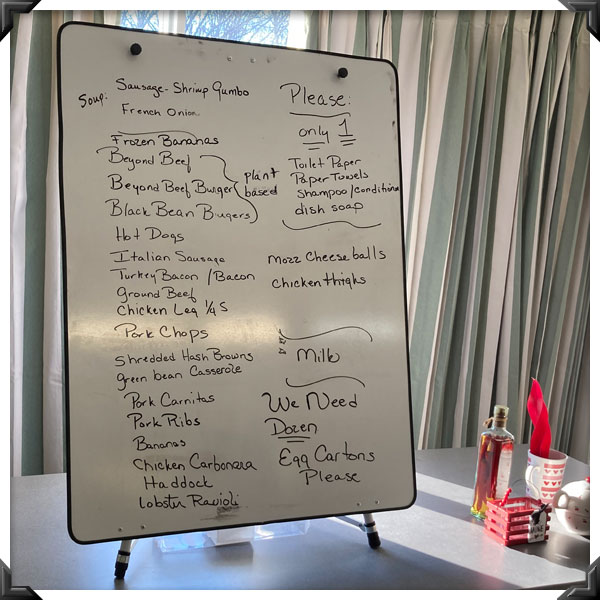 Soup: Sausage-Shrimp Gumbo
French Onion
Frozen Bananas
Beyond Beef
Beyond Beef Burger
Black Bean Bugers
plant
based
Hot Dogs
Italian Sausage
Turkey Bacon / Bacon
Ground Beef
Chicken Leg 1/4 s
Pork Chops
Shredded Hash Browns
green bean Casserole
Pork Carnitas
Pork Ribs
Bananas
Chicken Carbonara
Haddock
Lobster Ravioli
Please:
only 1
Toilet Paper
Paper Towels
Shampoo/Conditioner
dish soap
Mozz Cheese balls
Chicken thighs
Milk
We Need
Dozen
Egg Cartons
Please